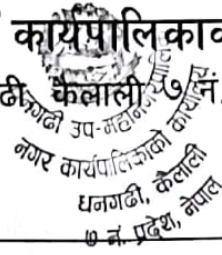 कार्यपालिकाव
ढी, कैलाली, ७ नं.
धनगढी उप-महानगरपालिका
नगर कार्यपालिकाको कार्यालय
धनगढी, कैलाली
७ नं. प्रदेश, नेपाल